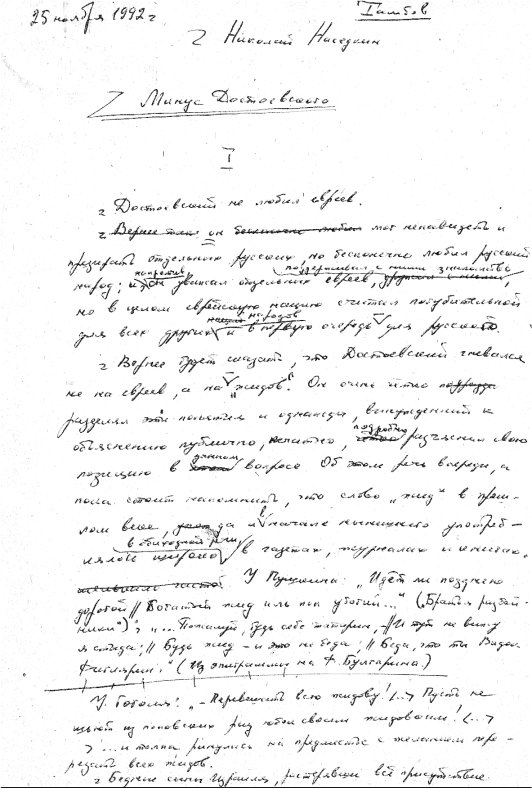 25 ноября 1992 г Тамбов
Николай Наседкин
Минус Достоевского
I
Достоевский не любил евреев.
Вернее он бесконечно любил мог ненавидеть и
презирать отдельных русских, но бесконечно любил русский
напротив поддерживал с ними знакомство
народ; и он уважал отдельных евреев, дружил с ними,
но в целом еврейскую нацию считал погубительной
народов
для всех других и в первую очередь для русского.
Вернее будет сказать, что Достоевский гневался
не на евреев, а на „жидов". Он очень чётко
разделял эти понятия и однажды, вынужденный к
подробно
объяснению публично, печатно, разъяснил свою
данном
позицию в этом вопросе. Об этом речь впереди, а
пока стоит напомнить, что слово „жид" в прош-
лом веке, да и в начале нынешнего употреб-
в обиходной речи
лялось широко в газетах, журналах и книгах.
У Пушкина: „Идёт ли позднею
дорогой // Богатый жид иль поп убогий..." („Братья разбой-
ники"); „...Пожалуй, будь себе татарин, // И тут не вижу
я стыда; // Будь жид – и это не беда; // Беда, что ты Видок
Фиглярин." (Из эпиграммы на Ф. Булгарина.)
У Гоголя: „–Перевешать всю жидову! <...> Пусть не
шьют из поповских риз юбок своим жидовкам! <...>
...и толпа ринулась на предместье с желанием пере-
резать всех жидов.
Бедные сыны Израиля, растерявши всё присутствие